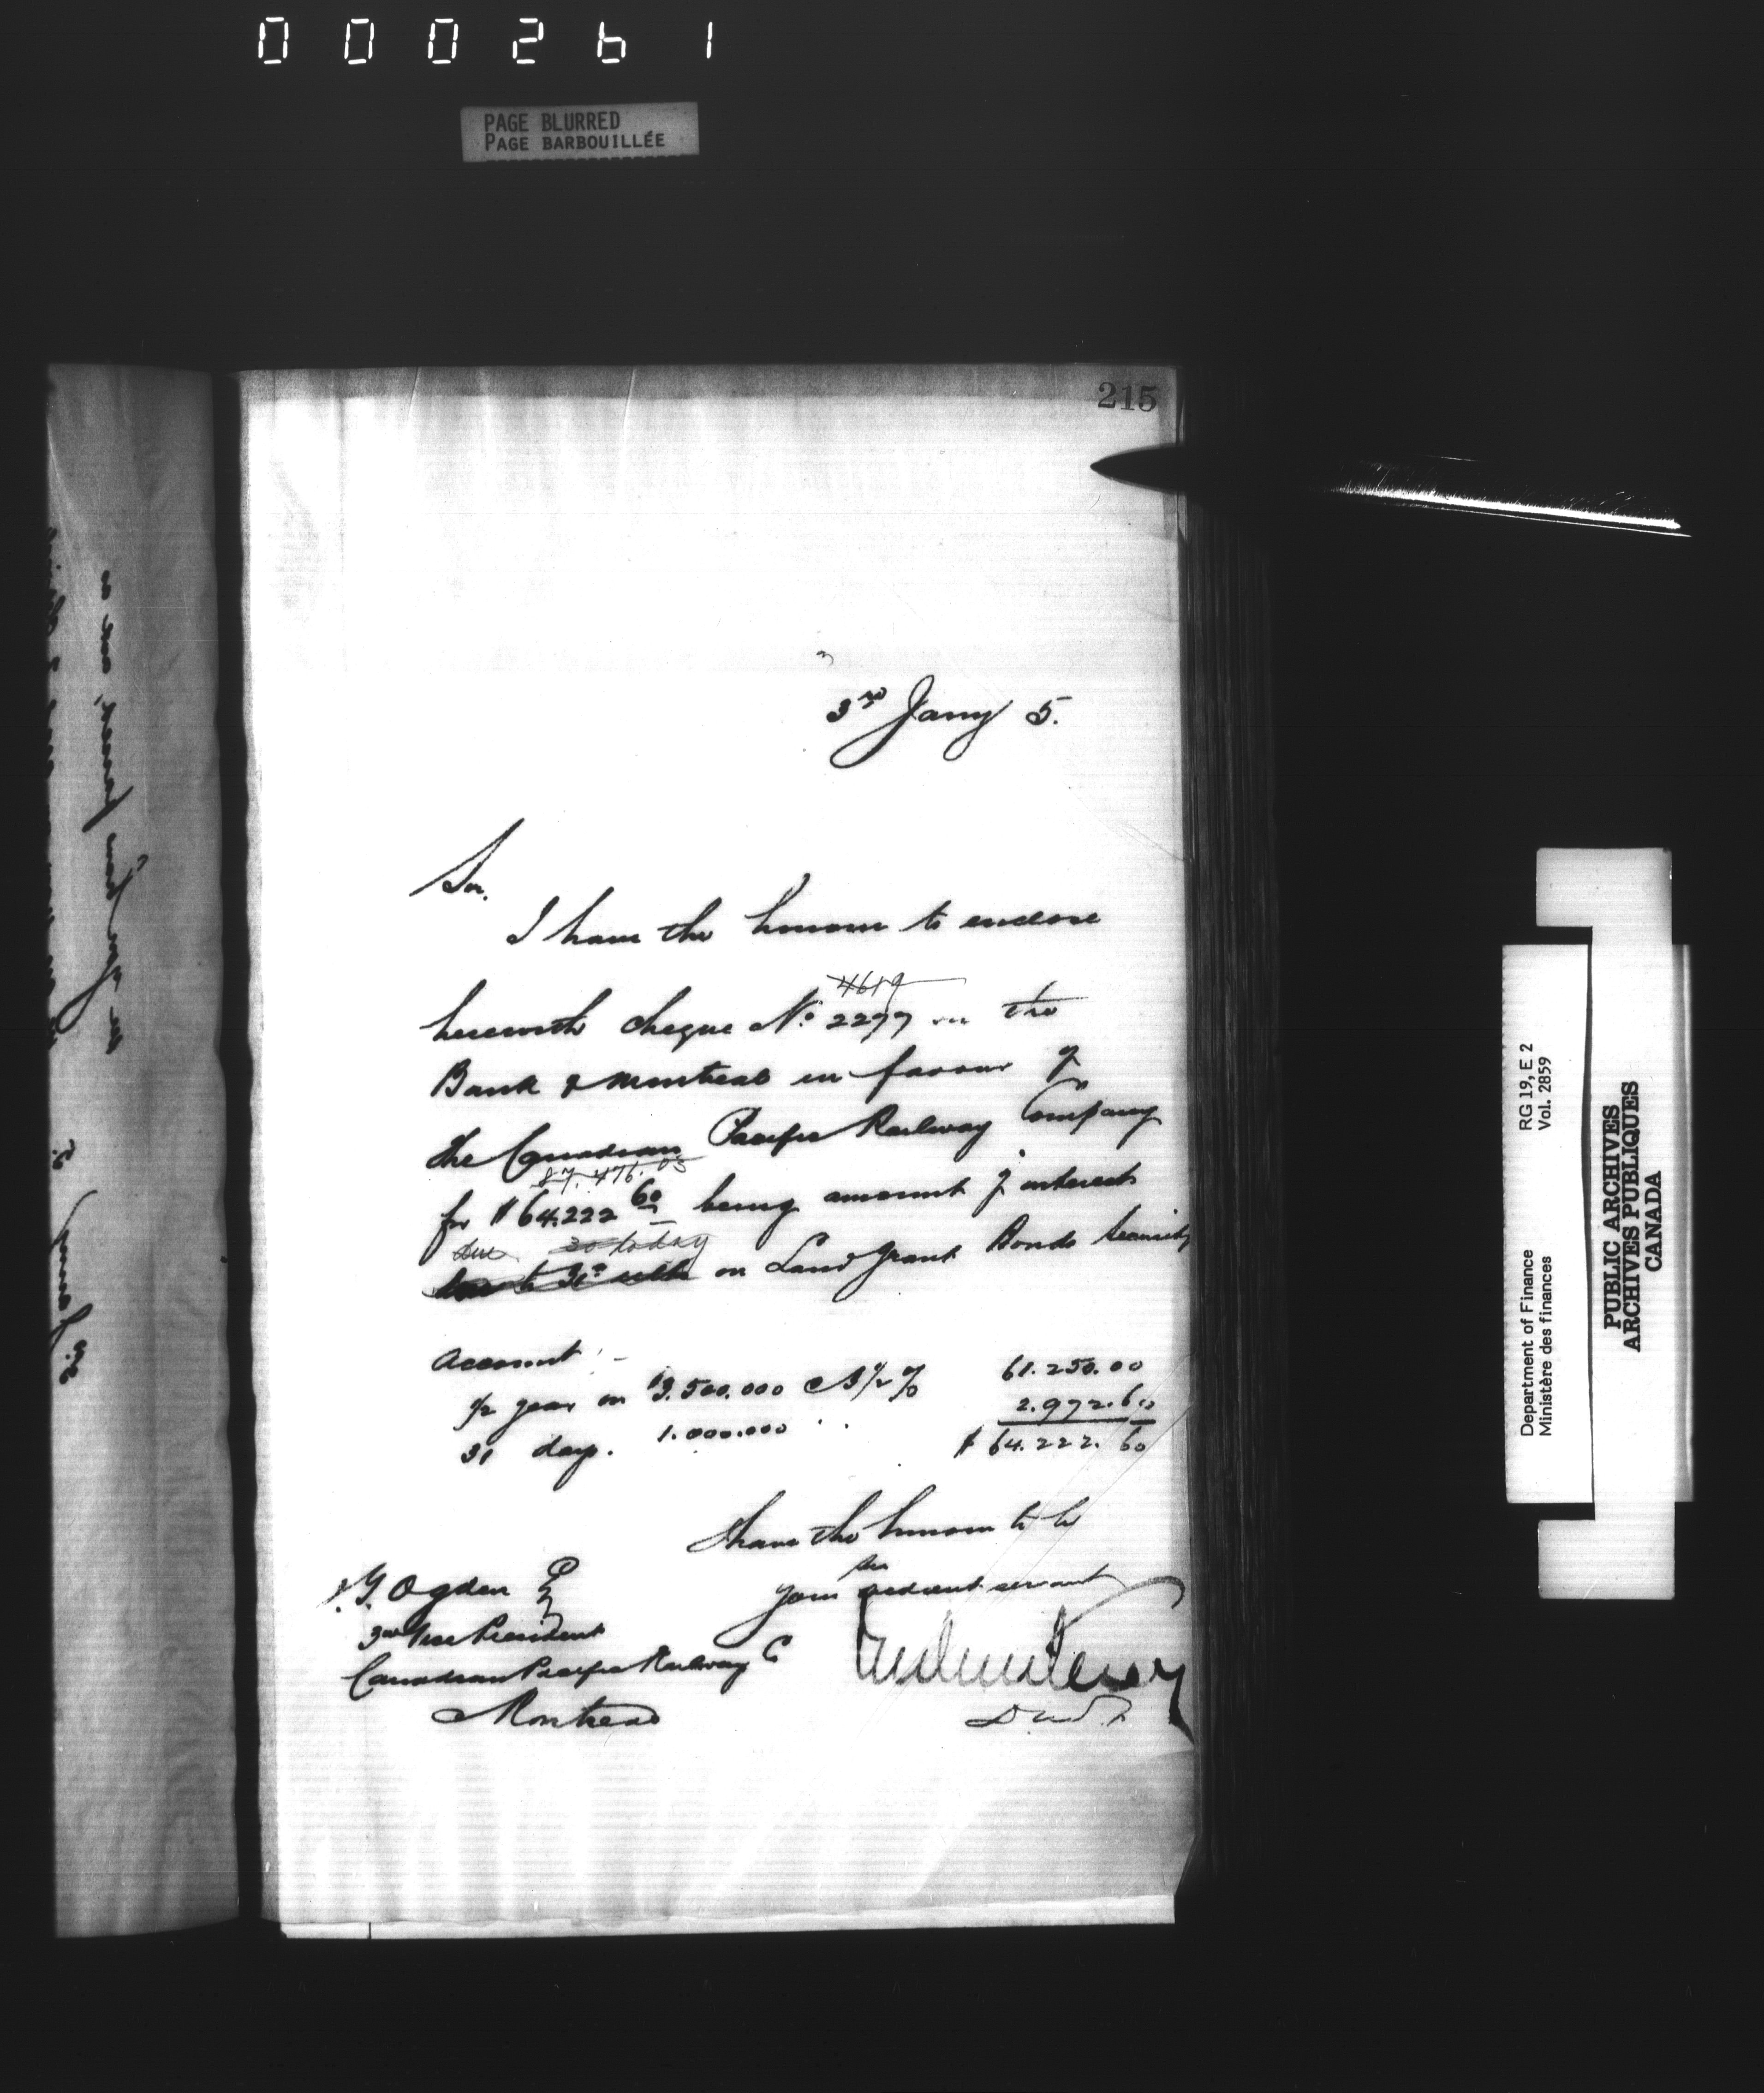 000261
PAGE BLURRED
PAGE BARBOUILLÉE
215
3rd Jany 5.
Sir,
I have the honour to enclose
4619
herewith cheque No 2277 on the
Bank of Montreal in favour of
the Canadian Pacific Railway Company
87.476.03
for $64.222 60 being amount of interest
due today
on Land Grant Bonds Security
Account :-
1/2 year on $3.500.000 @ 3 1/2 % 61.250.00
31 days. 1.000.000 " 2.972.60
$ 64.222.60
I have the honour to be
Sir
Your obedient servant
I. G. Ogden Esq
3rd Vice President
Canadian Pacific Railway Co
Montreal
Department of Finance RG 19, E 2
Ministère des finances Vol. 2859
PUBLIC ARCHIVES
ARCHIVES PUBLIQUES
CANADA